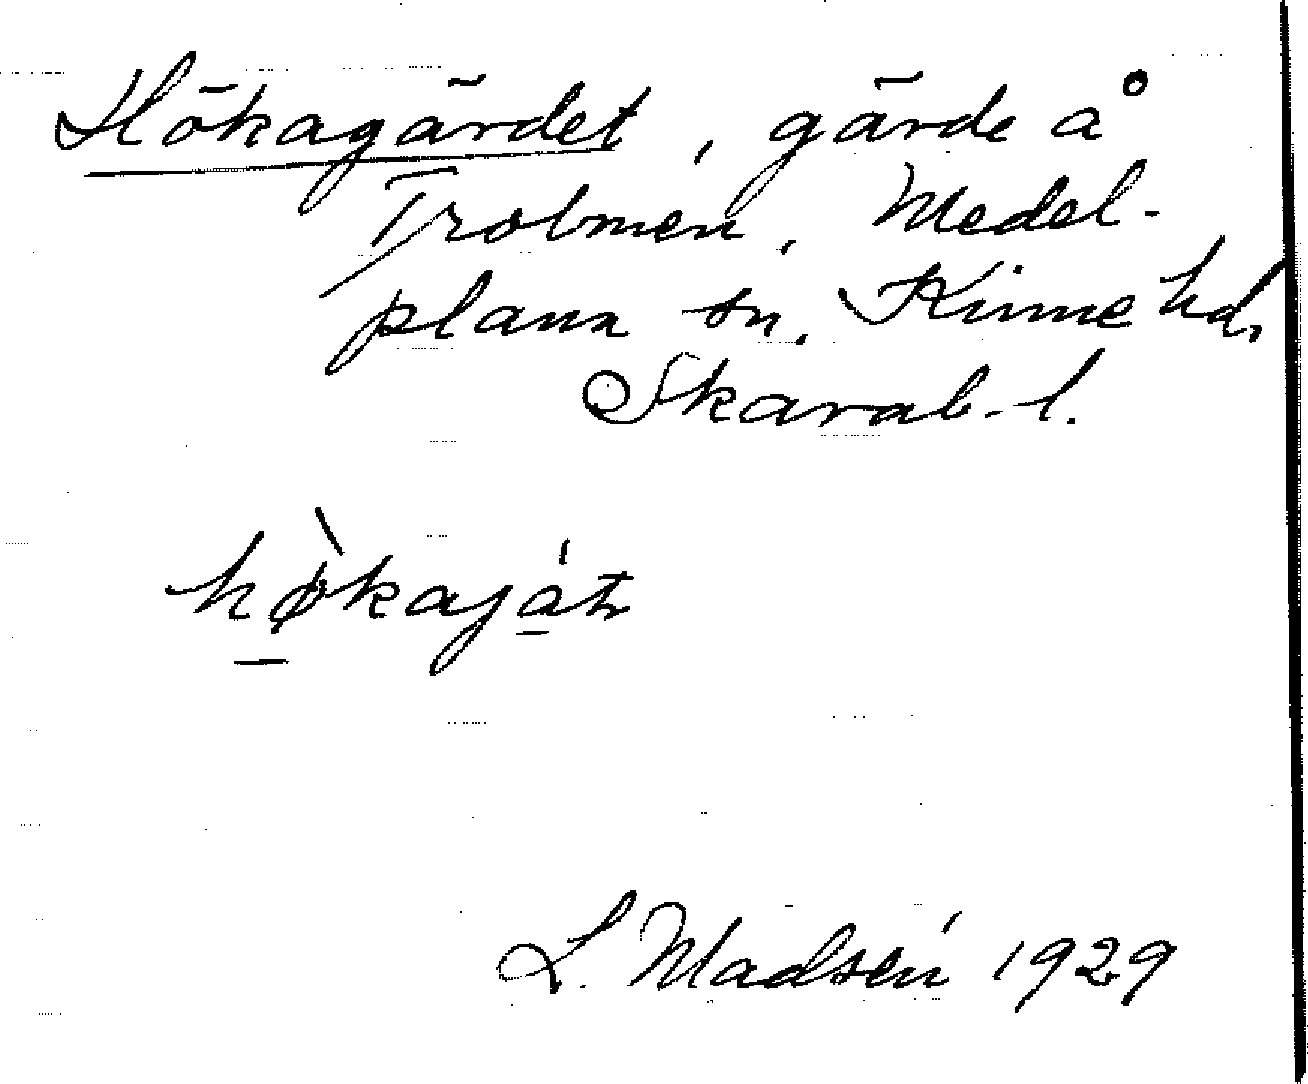 Hökagärdet, gärde å
Trolmen, Medel-
plana sn, Kinne hd,
Skarab. l.
hø̀kaját
L. Madsén 1929